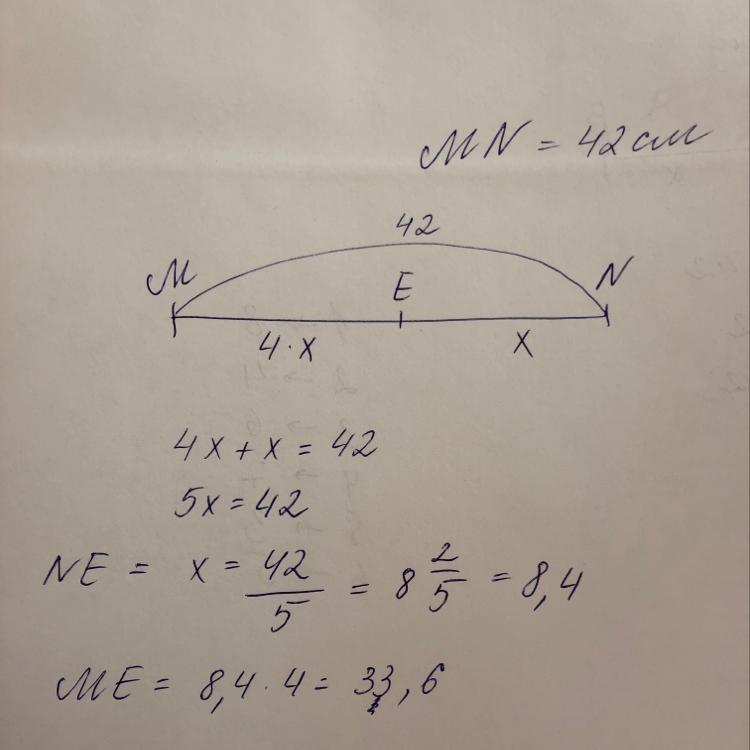 MN = 42 см
42
M E N
4·x x
4x + x = 42
5x = 42
NE = x = 42/5 = 8 2/5 = 8,4
ME = 8,4 · 4 = 33,6